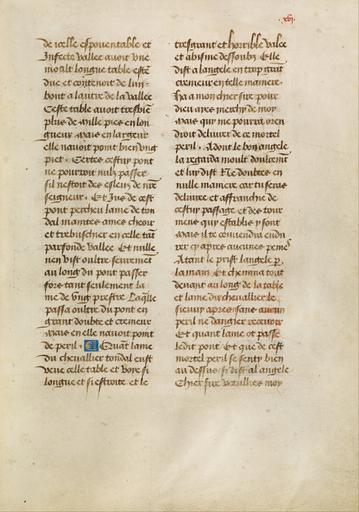 .xvi.
de icelle espouentable et
Infecte vallee auoit vne
moult longue table estē
due et contenoit de lun
bout a lautre de la vallee
Ceste table auoit tresbiē
plus de mille pies en lon
gueur mais en largeur
elle nauoit point bien vng
piet. Certes cestuy pont
ne pourroit nulz passer
sil nestoit des esleus de nr̄e
seigneur. Et Jus de cest
pont percheu lame de ton
dal maintes ames cheoir
et trebuschier en celle tāt
parfonde vallee Et nulle
nen vist oultre seurement
au long du pont passer
fors tant seulement la
me de sung prestre Laq̄lle
passa oultre du pont en
grant doubte et cremeur
mais en elle nauoit point
de peril. Quant lame
du cheuallier tondal eust
veue celle table et voye si
longue et si estroite et le
tresgrant et horrible valee
et abisme dessoubz Elle
dist a langele en trop grāt
cremeur en telle maniere
ha a mon chier sire pour
dieu ayes merchy de moy
mais qui me pourra oren
droit deliurer de ce mortel
peril. Adont le bon angele
la regarda moult doulcemt
et luy dist Ne doubtes en
nulle maniere car tu seras
deliuree et affranchie de
cestuy passage et des tour
mens quy estable y sont
mais il te conuendra endu
rer cy apres aucunes peines
Atant le prist langele p̄
la main Et chemina tout
deuant au long de la table
et lame du cheuallier le
sieuuy apres sans aucun
peril ne dangier receuoir
Et quant lame ot passe
ledit pont Et que de cest
mortel peril se senty bien
au dessus si dist al angele
Chier sire vueillies moy